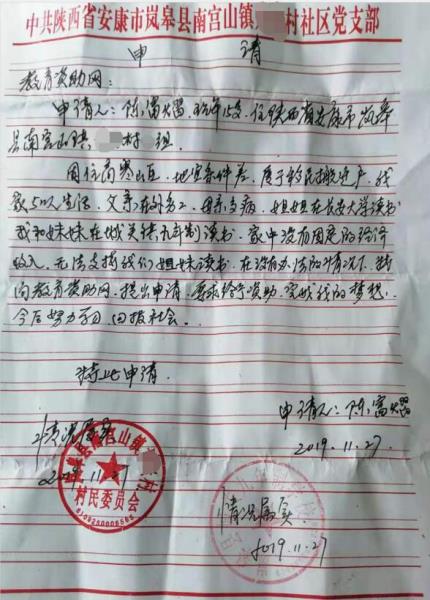 中共陕西省安康市岚皋县南宫山镇 村社区党支部
申 请
教育资助网：
申请人：陈富 ，昨年15岁，住陕西省安康市岚皋
县南宫山镇 村 组
因住高寒山区，地理条件差，属于移民搬迁户，我
家5口人生活，父亲在外务工，母亲多病，姐姐在长安大学读书
我和妹妹在城关镇九年制读书，家中没有固定的经济
收入，无法支撑我们姐妹读书，在没有办法的情况下，我
向教育资助网，提出申请，要求给予资助，完成我的梦想，
今后努力学习，回报社会。
特此申请
申请人：陈富
2019.11.27
情况属实
2019.11.27
南宫山镇
村民委员会
情况属实
2019.11.27